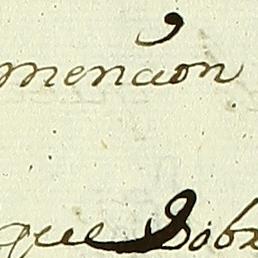 mencion
que Sobr